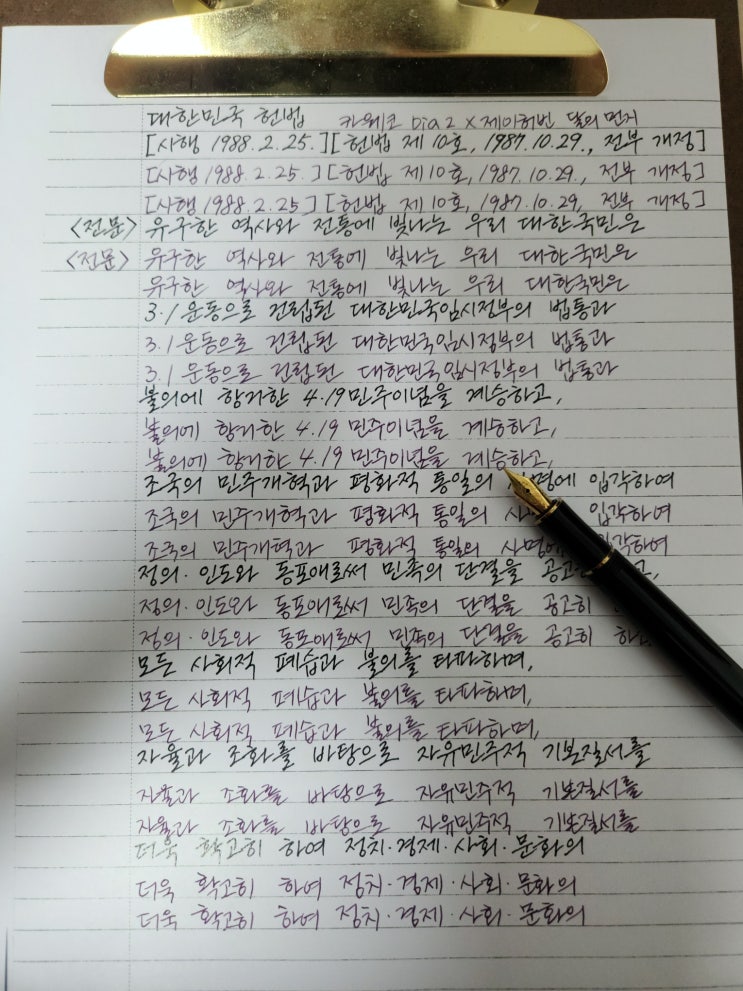 대한민국 헌법 카웨코 Dia2 X 제이허번 달의 먼지
[시행 1988. 2. 25.] [헌법 제10호, 1987. 10. 29., 전부 개정]
[시행 1988. 2. 25.] [헌법 제10호, 1987. 10. 29., 전부 개정]
[시행 1988. 2. 25] [헌법 제10호, 1987. 10. 29, 전부 개정]
<전문> 유구한 역사와 전통에 빛나는 우리 대한국민은
<전문> 유구한 역사와 전통에 빛나는 우리 대한국민은
유구한 역사와 전통에 빛나는 우리 대한국민은
3.1운동으로 건립된 대한민국임시정부의 법통과
3.1운동으로 건립된 대한민국임시정부의 법통과
3.1운동으로 건립된 대한민국임시정부의 법통과
불의에 항거한 4.19민주이념을 계승하고,
불의에 항거한 4.19민주이념을 계승하고,
불의에 항거한 4.19민주이념을 계승하고,
조국의 민주개혁과 평화적 통일의 명에 입각하여
조국의 민주개혁과 평화적 통일의 입각하여
조국의 민주개혁과 평화적 통일의 사명에 각하여
정의·인도와 동포애로써 민족의 단결을 공고 고,
정의·인도와 동포애로써 민족의 단결을 공고히
정의·인도와 동포애로써 민족의 단결을 공고히 하
모든 사회적 폐습과 불의를 타파하며,
모든 사회적 폐습과 불의를 타파하며,
모든 사회적 폐습과 불의를 타파하며,
자율과 조화를 바탕으로 자유민주적 기본질서를
자율과 조화를 바탕으로 자유민주적 기본질서를
자율과 조화를 바탕으로 자유민주적 기본질서를
더욱 확고히 하여 정치·경제·사회·문화의
더욱 확고히 하여 정치·경제·사회·문화의
더욱 확고히 하여 정치·경제·사회·문화의